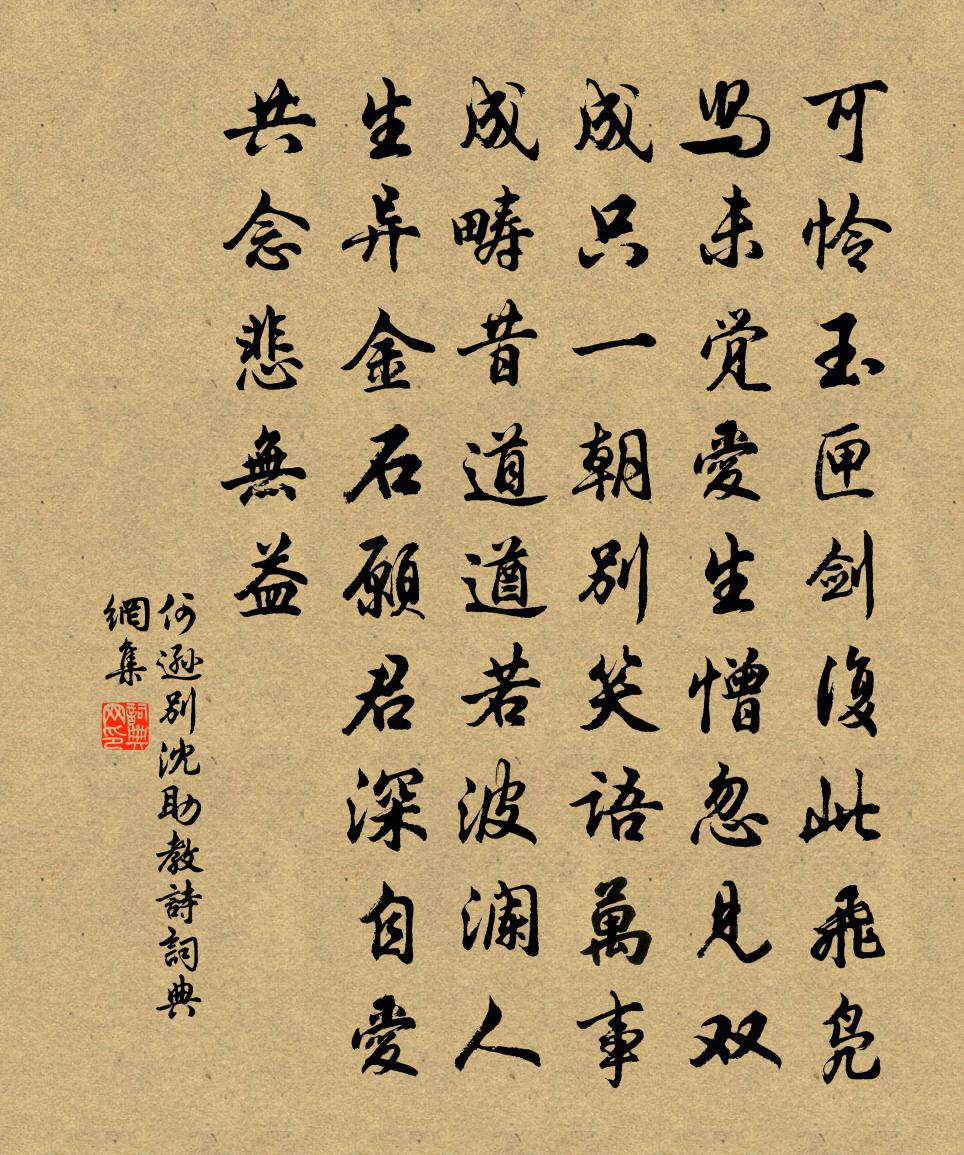 可怜玉匣剑復此飛凫
舄未覚愛生憎忽見双
成只一朝别笑語萬事
成疇昔道道若波澜人
生异金石願君深自愛
共念悲無益
何遜别沈助教詩詞典
網集
詞典网印